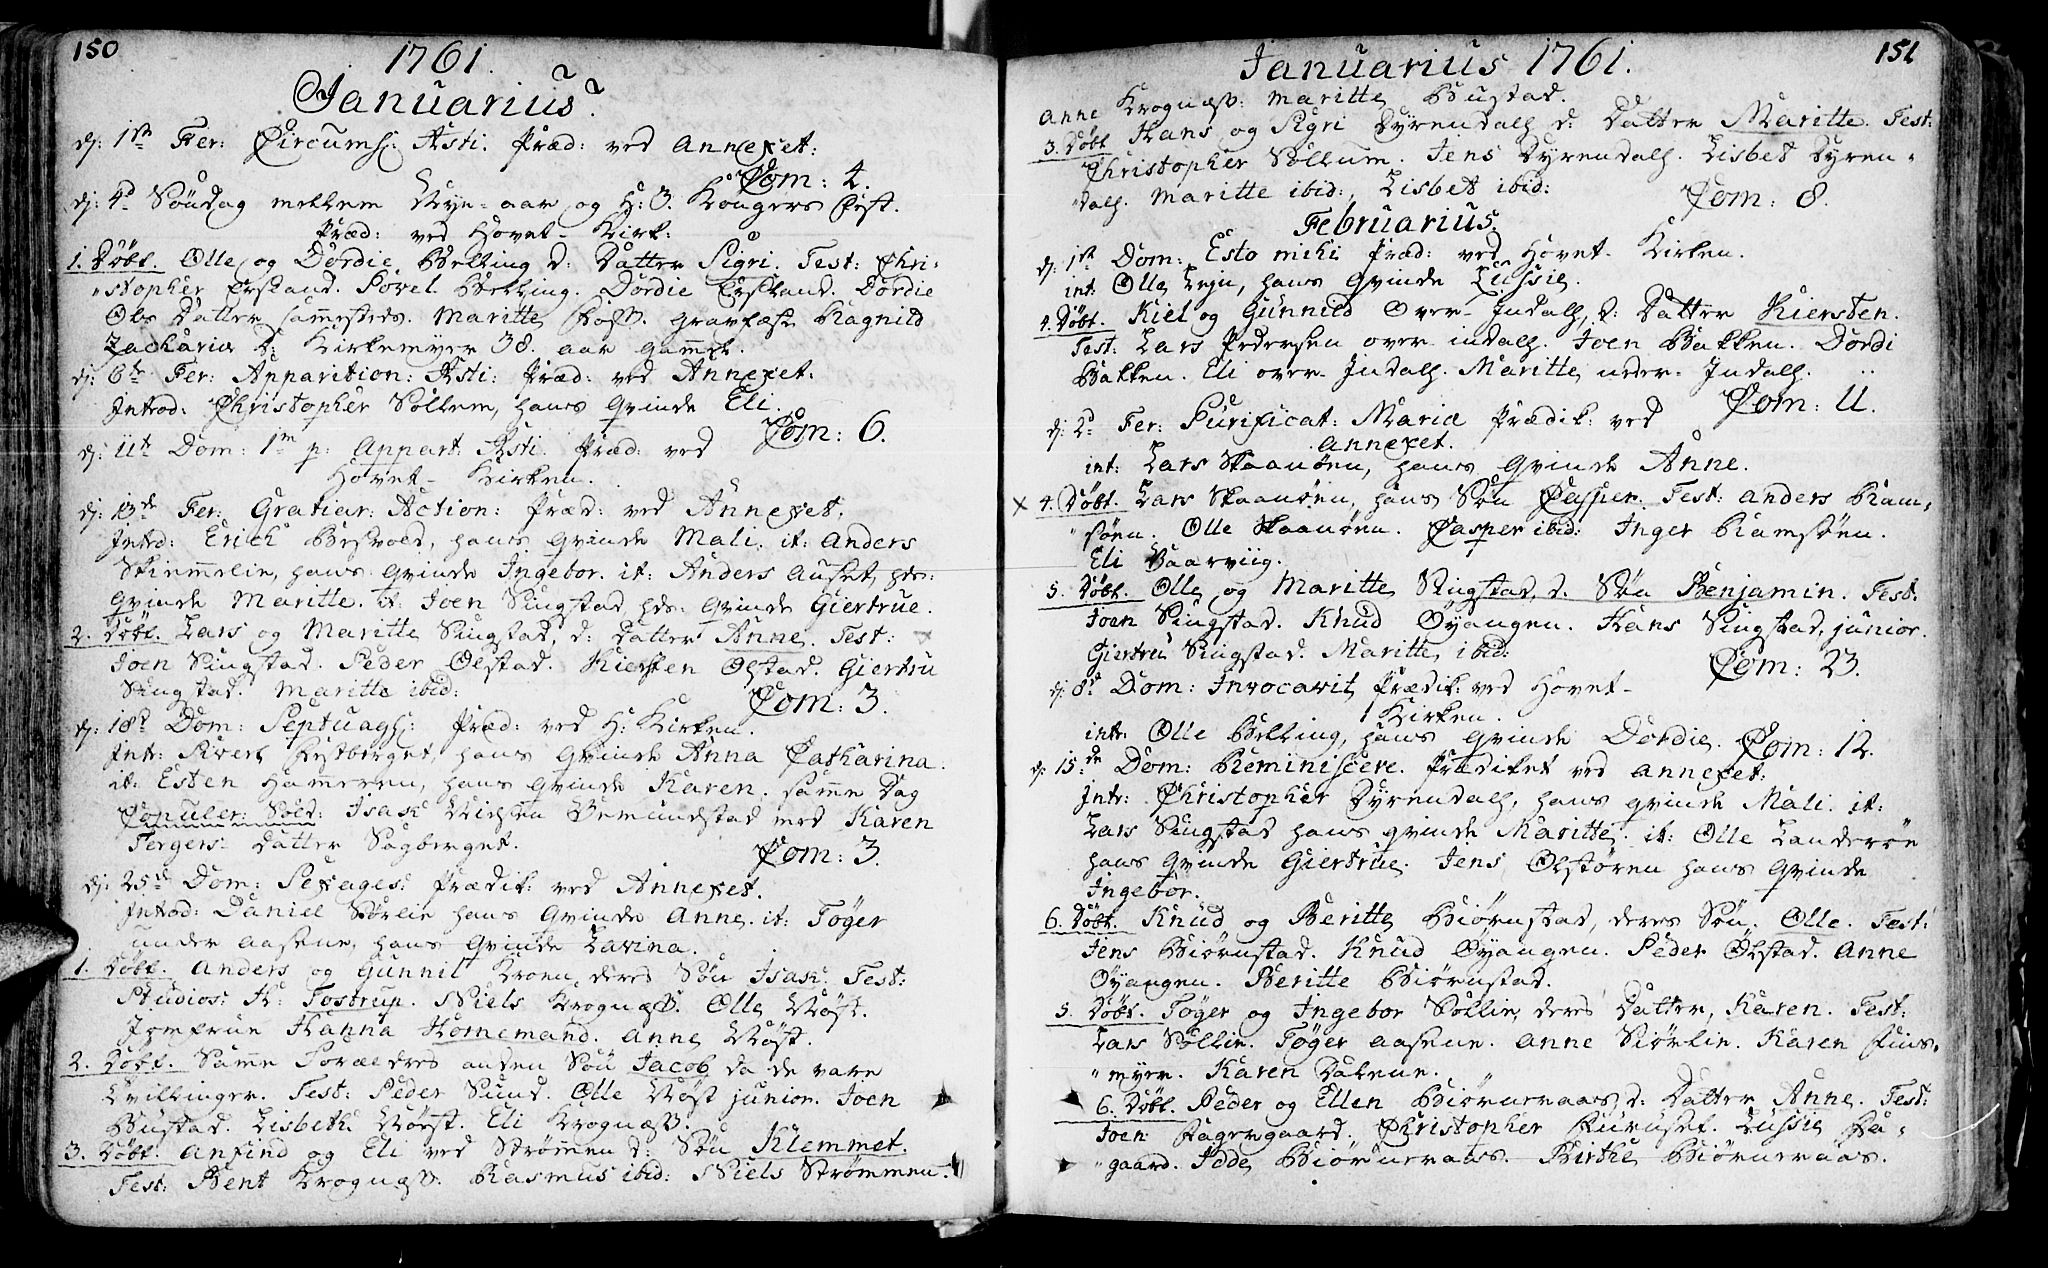 150
1761.
Januarius.
d: 1ste Fer: Circumf: Xsti. Præd: ved Annexet:
Com: 4.
d: 4de Søndag mellem Nyn-aar og H: 3. Kongers Fest.
Præd: ved Hovet-Kirk:
1. Døbt. Olle og Dordie Belling d: Datter Sigri. Test: Chri-
stopher Erstand. Povel Belling. Dordie Erstand. Dordie
Ols Datter sammesteds. Maritte Gravfæst Ragnild
Zacharia D: Kirkemyer 38. aar gammel.
d: 6te Fer: Apparition: Xsti: Præd: ved Annexet:
Introd: Christopher Sollem, hans Qvinde Eli.
Com: 6.
d: 11te Dom: 1m p: Appart: Xsti. Præd: ved
Hovet-Kirken.
d: 13de Fer: Gratiar: Action: Præd: ved Annexet.
Intrd: Erich Besvold, hans Qvinde Mali. it: Anders
hans Qvinde Ingebor. it: Anders Auset, hds:
Qvinde Maritte. it: Joen Singstad, hds: Qvinde Giertrue.
2. Døbt. Lars og Maritte Singstad, d: Datter Anne. Test:
Joen Singstad. Peder Olstad. Kiersten Olstad. Giertru
Singstad. Maritte ibid:
Com: 3.
d: 18de Dom: Septuags: Præd: ved H: Kirken.
Intr: Sivert Estberget, hans Qvinde Anna Catharina.
it: Esten Hammeren, hans Qvinde Karen. samme Dag
Copuler: Sold: Isak Nielsen Demundstad med Karen
Fergers-Datter Sagberget.
Com: 3.
d: 25de Dom: Sexages: Prædik: ved Annexet.
Introd: Daniel Sørlie hans Qvinde Anne. it: Tøger
under aasene, hans Qvinde Lavina.
1. Døbt. Anders og Gunnil Kroen, deres Søn Isak. Test:
Studios: H: Tostrup. Niels Krognæss. Olle Møst.
Jomfrue Hanna Hornemand. Anne Møst.
2. Døbt. Samme Forældres anden Søn Jacob da de vare
Tvillinger. Test: Peder Sund. Olle Møst junior. Joen
Bustad. Lisbeth Møst. Eli Krognæss.
3. Døbt. Anfind og Eli ved Strømmen d: Søn Klemmet.
Test: Bent Krognæss. Rasmus ibid: Niels Strømmen.
151
Januarius 1761.
Anne Krognæss: Maritte Bustad.
3. Døbt Hans og Sigri Dyrendahl d: Datter Maritte. Test:
Christopher Sollum. Jens Dyrendahl. Lisbet Dyren-
dahl. Maritte ibid: Lisbet ibid:
Com: 8.
Februarius.
d: 1ste Dom: Esto mihi Præd: ved Hovet-Kirken.
int: Olle hans Qvinde Lussie.
4. Døbt. Kiel og Gunnild Over-Indahl, d: Datter Kiersten.
Test: Lars Pedersen over indahl. Joen Bakken. Dordi
Bakken. Eli over-Indahl. Maritte neder-Indahl.
Com: 11.
d: 2de Fer: Purificat: Mariæ Prædik: ved
Annexet.
int: Lars Skaanøen, hans Qvinde Anne.
x 4. Døbt. Lars Skaanøen, hans Søn Casper. Test: Anders Ram-
søen. Olle Skaanøen. Casper ibid: Inger Ramsøen.
Eli Vaarviig.
5. Døbt. Olle og Maritte Singstad, d. Søn Benjamin. Test:
Joen Singstad. Knud Øyangen. Hans Singstad, junior.
Giertru Singstad. Maritte ibid:
Com: 23.
d: 8de Dom: Invocavit, Prædik: ved Hovet-
Kirken.
intr: Olle Belling, hans Qvinde Dordie.
Com: 12.
d: 15de Dom: Reminiscere. Prædiket ved annexet:
Intr: Christopher Dyrendahl, hans qvinde Mali. it:
Lars Singstad hans qvinde Maritte. it: Olle Landerøe
hans Qvinde Giertrue. Jens Olstøren hans Qvinde
Ingebor.
6. Døbt. Knud og Beritte Biørnstad, deres Søn. Olle. Test:
Jens Biørnstad. Knud Øyangen. Peder Olstad. Anne
Øyangen. Beritte Biørnstad.
5. Døbt. Tøger og Ingebor Sollie, deres Datter, Karen. Test:
Lars Sollie. Tøger Aasene. Anne Siørlie. Karen
myer. Karen Dalene.
6. Døbt. Peder og Ellen Biørneraas, d: Datter Anne. Test:
Joen Christopher Furuset. Lussie
gaard. Idde Biørneraas. Birthe Biørneraas.